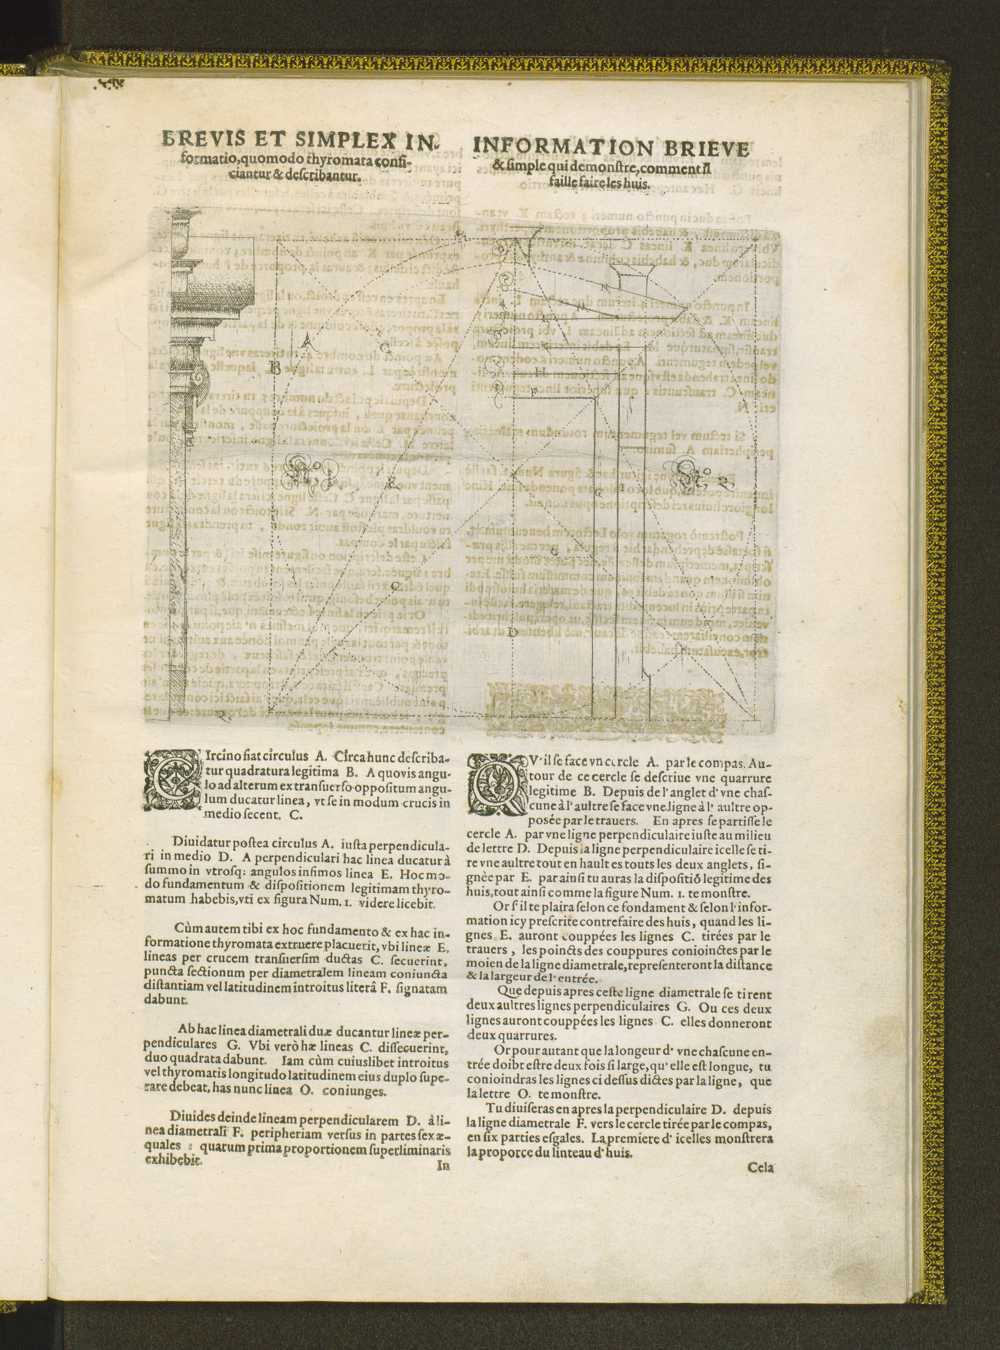 BREVIS ET SIMPLEX IN-
formatio, quomodo thyromata confi-
ciantur & describantur.
INFORMATION BRIEVE
& simple qui demonstre, comment il
faille faire les huis.
A
B
C
H
F
G
E
N
D
C
Circino fiat circulus A. Circa hunc describa-
tur quadratura legitima B. A quovis angu-
lo ad alterum ex transuerso oppositum angu-
lum ducatur linea, vt se in modum crucis in
medio secent. C.
Diuidatur postea circulus A. iusta perpendicula-
ri in medio D. A perpendiculari hac linea ducatur à
summo in vtrosq; angulos infimos linea E. Hoc mo-
do fundamentum & dispositionem legitimam thyro-
matum habebis, vti ex figura Num. 1. videre licebit.
Cùm autem tibi ex hoc fundamento & ex hac in-
formatione thyromata extruere placuerit, vbi lineæ E.
lineas per crucem transuersim ductas C. secuerint,
puncta sectionum per diametralem lineam coniuncta
distantiam vel latitudinem introitus literâ F. signatam
dabunt.
Ab hac linea diametrali duæ ducantur lineæ per-
pendiculares G. Vbi verò hæ lineas C. dissecuerint,
duo quadrata dabunt. Iam cùm cuiuslibet introitus
vel thyromatis longitudo latitudinem eius duplo supe-
rare debeat, has nunc linea O. coniunges.
Diuides deinde lineam perpendicularem D. à li-
nea diametrali F. peripheriam versus in partes sex æ-
quales : quarum prima proportionem superliminaris
exhibebit.
In
QV'il se face vn cercle A. par le compas. Au-
tour de ce cercle se descriue vne quarrure
legitime B. Depuis de l'anglet d'vne chas-
cune à l'aultre se face vne ligne à l' aultre op-
posée par le trauers. En apres se partisse le
cercle A. par vne ligne perpendiculaire iuste au milieu
de lettre D. Depuis la ligne perpendiculaire icelle se ti-
re vne aultre tout en hault es touts les deux anglets, si-
gnée par E. par ainsi tu auras la dispositiõ legitime des
huis, tout ainsi comme la figure Num. 1. te monstre.
Or s'il te plaira selon ce fondament & selon l'infor-
mation icy prescrite contrefaire des huis, quand les li-
gnes E. auront couppées les lignes C. tirées par le
trauers, les poincts des couppures conioinctes par le
moien de la ligne diametrale, representeront la distance
& la largeur de l'entrée.
Que depuis apres ceste ligne diametrale se tirent
deux aultres lignes perpendiculaires G. Ou ces deux
lignes auront couppées les lignes C. elles donneront
deux quarrures.
Or pour autant que la longeur d' vne chascune en-
trée doibt estre deux fois si large, qu' elle est longue, tu
conioindras les lignes ci dessus dictes par la ligne, que
la lettre O. te monstre.
Tu diuiseras en apres la perpendiculaire D. depuis
la ligne diametrale F. vers le cercle tirée par le compas,
en six parties esgales. La premiere d' icelles monstrera
la proporce du linteau d' huis.
Cela